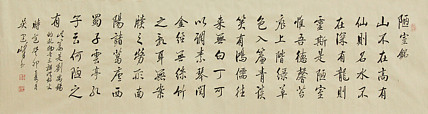 陋室銘
山不在高有
仙則名水不
在深有龍則
靈斯是陋室
惟吾德馨苔
痕上階綠草
色入簾青談
笑有鴻儒往
來無白丁可
以調素琴閱
金經無絲竹
之亂耳無案
牘之勞形南
陽諸葛廬西
蜀子雲亭孔
子云何陋之
有